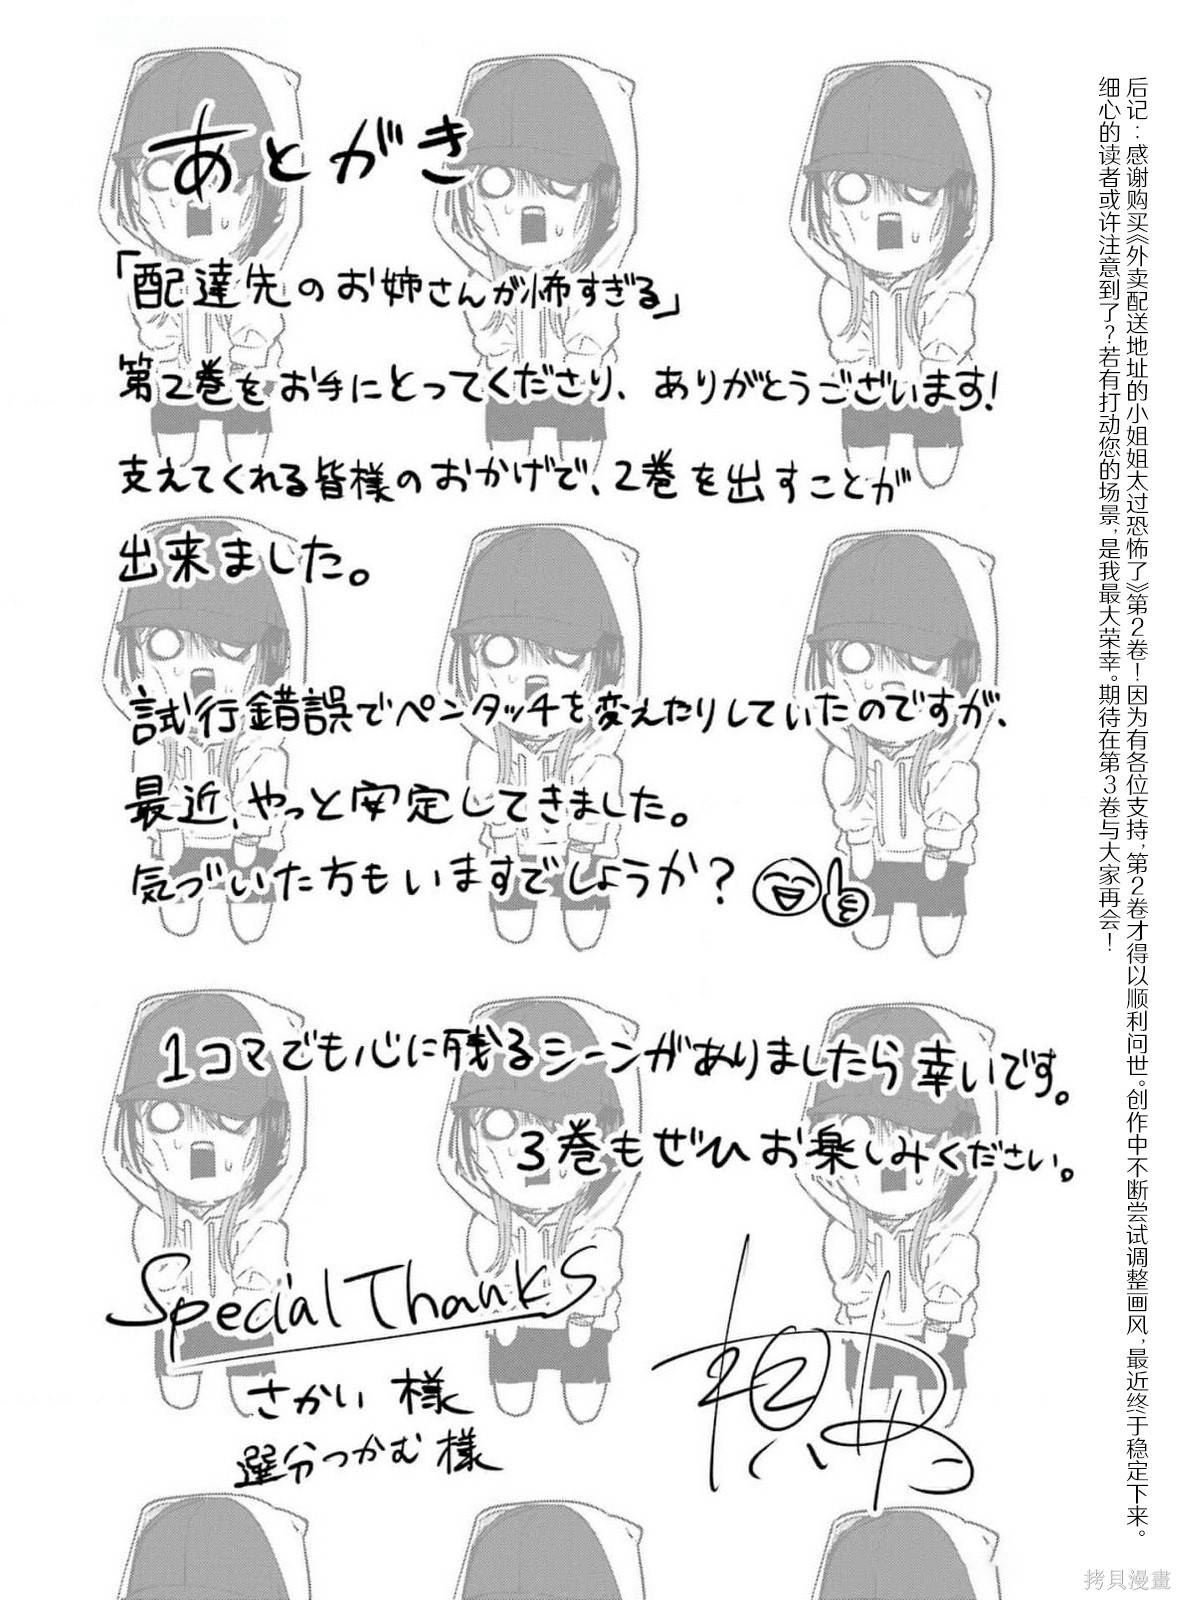 あとがき
「配達先のお姉さんが怖すぎる」
第2巻をお手にとってくださり、ありがとうございます!
支えてくれる皆様のおかげで、2巻を出すことが
出来ました。
試行錯誤でペンタッチを変えたりしていたのですが、
最近、やっと安定してきました。
気づいた方もいますでしょうか?
1コマでも心に残るシーンがありましたら幸いです。
3巻もぜひお楽しみください。
Special Thanks
さかい 様
選分つかむ様
后记:感谢购买《外卖配送地址的小姐姐太过恐怖了》第2卷!因为有各位支持,第2卷才得以顺利问世。创作中不断尝试调整画风,最近终于稳定下来。
细心的读者或许注意到了?若有打动您的场景,是我最大荣幸。期待在第3卷与大家再会!
拷貝漫畫